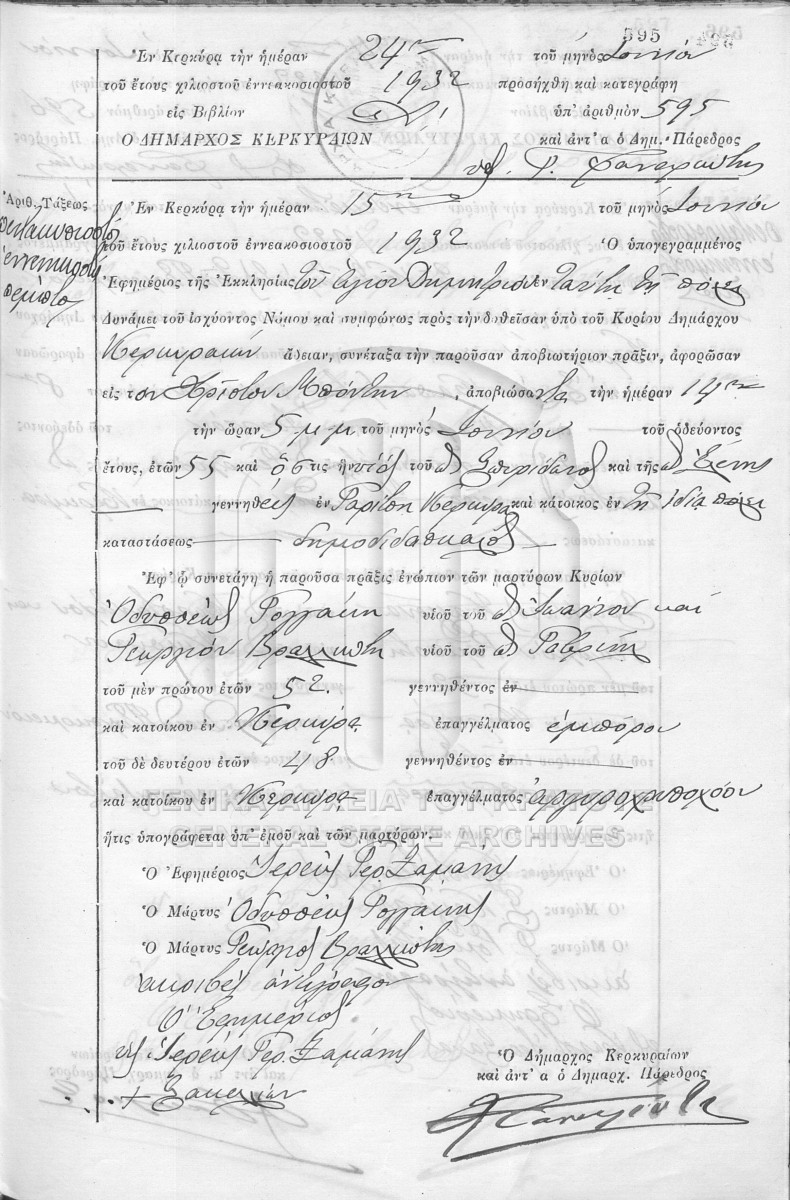 595
Ἐν Κερκύρᾳ τὴν ἡμέραν 24ην τοῦ μηνὸς Ἰουνίου
τοῦ ἔτους χιλιοστοῦ ἐννεακοσιοστοῦ 1932 προσήχθη καὶ κατεγράφη
εἰς Βιβλίον ὑπ' ἀριθμὸν 595
Ο ΔΗΜΑΡΧΟΣ ΚΕΡΚΥΡΑΙΩΝ καὶ ἀντ' α ὁ Δημ. Πάρεδρος
Ἀριθ. Τάξεως
πεντακοσιοστὸν
ἐννενηκοστὸν
πέμπτον
Ἐν Κερκύρᾳ τὴν ἡμέραν 15ην τοῦ μηνὸς Ἰουνίου
τοῦ ἔτους χιλιοστοῦ ἐννεακοσιοστοῦ 1932 Ὁ ὑπογεγραμμένος
Ἐφημέριος τῆς Ἐκκλησίας τοῦ Ἁγίου Δημητρίου ἐν ταύτῃ τῇ πόλει
Δυνάμει τοῦ ἰσχύοντος Νόμου καὶ συμφώνως πρὸς τὴν δοθεῖσαν ὑπὸ τοῦ Κυρίου Δημάρχου
Κερκυραίων ἄδειαν, συνέταξα τὴν παροῦσαν ἀποβιωτήριον πρᾶξιν, ἀφορῶσαν
εἰς τὸν Χρῖστον Μπόντην, ἀποβιώσαντα τὴν ἡμέραν 14ην
τὴν ὥραν 5 μμ τοῦ μηνὸς Ἰουνίου τοῦ ὁδεύοντος
ἔτους, ἐτῶν 55 καὶ ὅστις ἦν υἱὸς τοῦ Σπυρίδωνος καὶ τῆς Ἑλένης
γεννηθεὶς ἐν Γαρίτσῃ Κερκύρας καὶ κάτοικος ἐν τῇ ἰδίᾳ πόλει
καταστάσεως δημοδιδάσκαλος
Ἐφ' ᾧ συνετάγη ἡ παροῦσα πρᾶξις ἐνώπιον τῶν μαρτύρων Κυρίων
Ὀδυσσέως Ρογγάκη υἱοῦ τοῦ Ἰωάννου καὶ
Γεωργίου υἱοῦ τοῦ
τοῦ μὲν πρώτου ἐτῶν 52. γεννηθέντος ἐν
καὶ κατοίκου ἐν Κερκύρᾳ ἐπαγγέλματος ἐμπόρου
τοῦ δὲ δευτέρου ἐτῶν 48 γεννηθέντος ἐν
καὶ κατοίκου ἐν Κερκύρᾳ ἐπαγγέλματος ἀργυροχρυσοχόου
ΓΕΝΙΚΑ ΑΡΧΕΙΑ ΤΟΥ ΚΡΑΤΟΥΣ
ἥτις ὑπογράφεται ὑπ' ἐμοῦ καὶ τῶν μαρτύρων.
GENERAL STATE ARCHIVES
Ὁ Ἐφημέριος Ἱερεὺς Γερ. Ζαμάνης
Ὁ Μάρτυς Ὀδυσσεὺς Ρογγάκης
Ὁ Μάρτυς Γεώργιος
ἀκριβὲς ἀντίγραφον
Ὁ Ἐφημέριος
Ἱερεὺς Γερ. Ζαμάνης
Ὁ Δήμαρχος Κερκυραίων
καὶ ἀντ' α ὁ Δημαρχ. Πάρεδρος